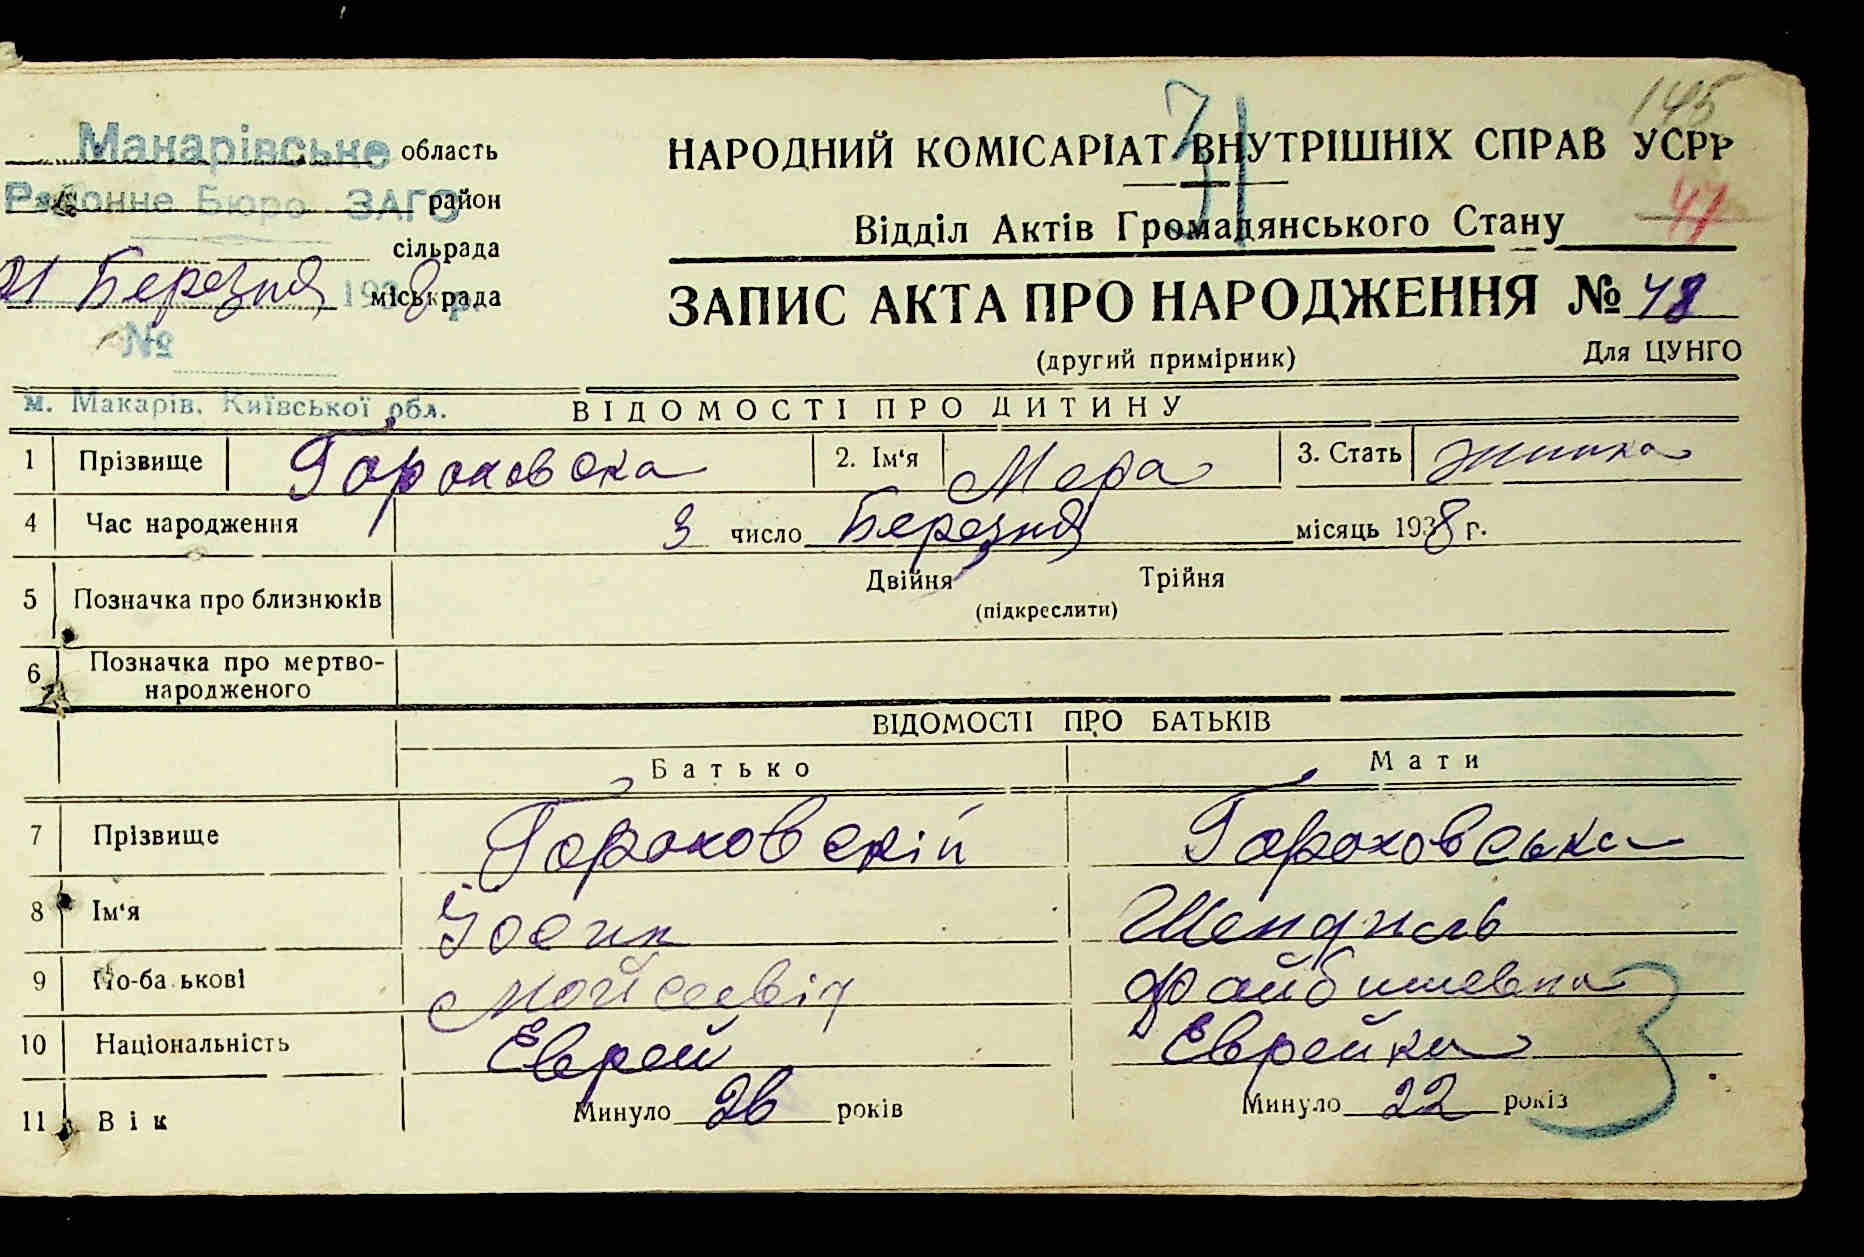 145
71
Макарівське область
Районне Бюро ЗАГС район
сільрада
21 Березня 1938 р. міськрада
№
м. Макарів, Київської обл.
НАРОДНИЙ КОМІСАРІАТ ВНУТРІШНІХ СПРАВ УСРР
47
Відділ Актів Громадянського Стану
ЗАПИС АКТА ПРО НАРОДЖЕННЯ № 48
(другий примірник) Для ЦУНГО
ВІДОМОСТІ ПРО ДИТИНУ
1 Прізвище Гороховска 2. Ім‘я Мера 3. Стать жинка
4 Час народження 3 число Березня місяць 1938 г.
5 Позначка про близнюків Двійня Трійня
(підкреслити)
6 Позначка про мертво-
народженого
ВІДОМОСТІ ПРО БАТЬКІВ
Батько Мати
7 Прізвище Гороховскій Гороховська
8 Ім‘я Йосип Шендиль
9 По-батькові Мойсеевіч Файбишевна
10 Національність Еврей Еврейка
11 Вік Минуло 26 років Минуло 22 років
3